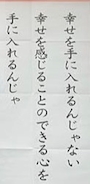 幸せを手に入れるんじゃない
幸せを感じることのできる心を
手に入れるんじゃ